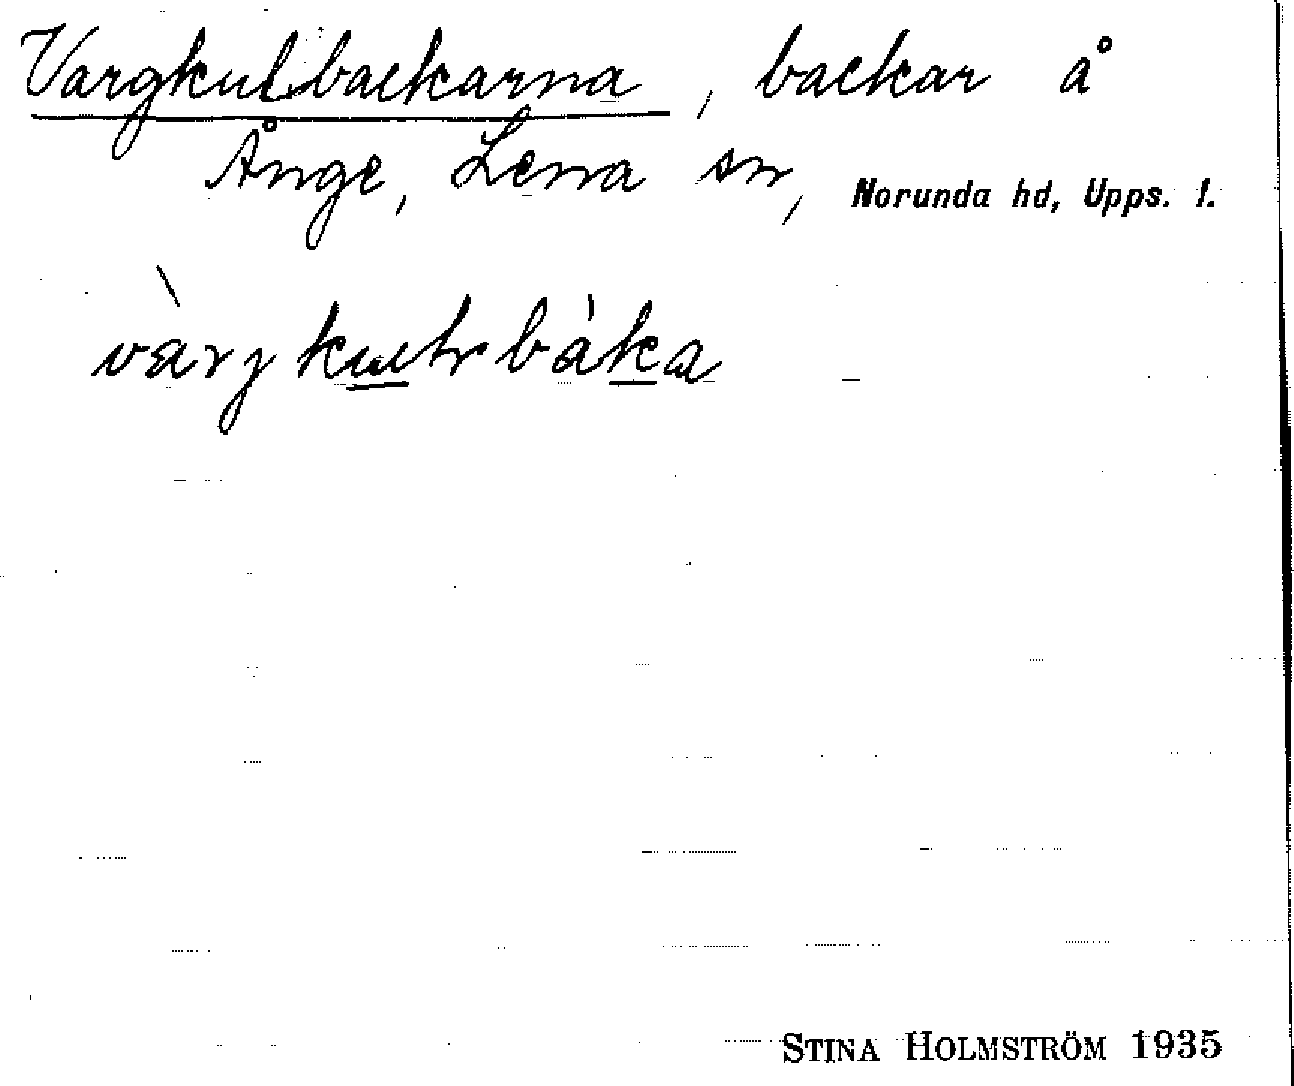 Vargkulbackarna, backar å
Ånge, Lena sn, Norunda hd, Upps. l.
STINA HOLMSTRÖM 1935